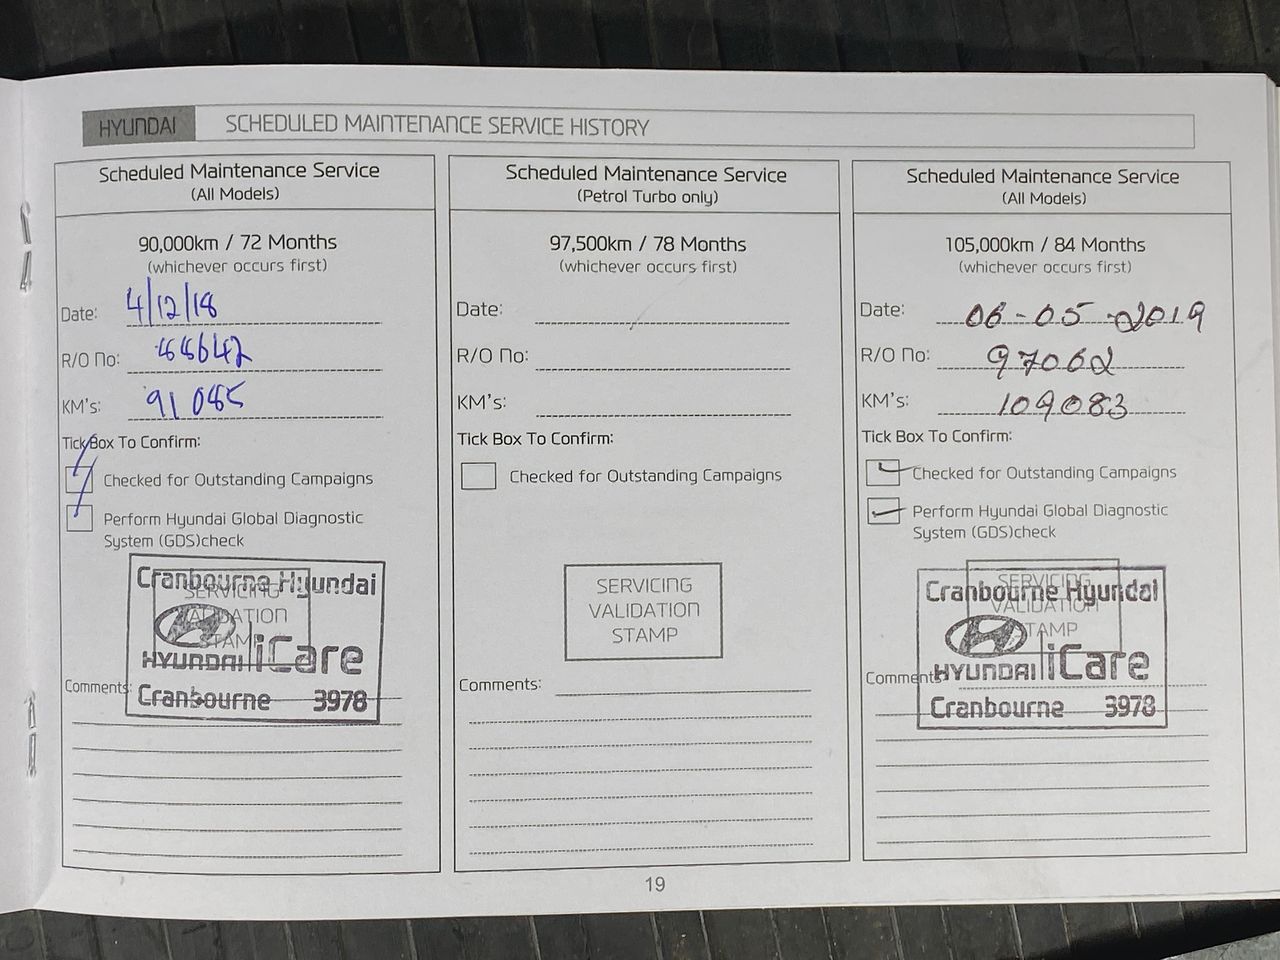 HYUNDAI SCHEDULED MAINTENANCE SERVICE HISTORY
Scheduled Maintenance Service
(All Models)
90,000km / 72 Months
(whichever occurs first)
Date: 4/12/18
R/O No:
KM's: 91085
Tick Box To Confirm:
Checked for Outstanding Campaigns
Perform Hyundai Global Diagnostic
System (GDS)check
SERVICING
VALIDATION
STAMP
Cranbourne Hyundai
HYUNDAI iCare
Cranbourne 3978
Comments:
Scheduled Maintenance Service
(Petrol Turbo only)
97,500km / 78 Months
(whichever occurs first)
Date:
R/O No:
KM's:
Tick Box To Confirm:
Checked for Outstanding Campaigns
SERVICING
VALIDATION
STAMP
Comments:
Scheduled Maintenance Service
(All Models)
105,000km / 84 Months
(whichever occurs first)
Date: 06-05-2019
R/O No: 97062
KM's: 109083
Tick Box To Confirm:
Checked for Outstanding Campaigns
Perform Hyundai Global Diagnostic
System (GDS)check
SERVICING
VALIDATION
STAMP
Cranbourne Hyundai
HYUNDAI iCare
Cranbourne 3978
Comments:
19